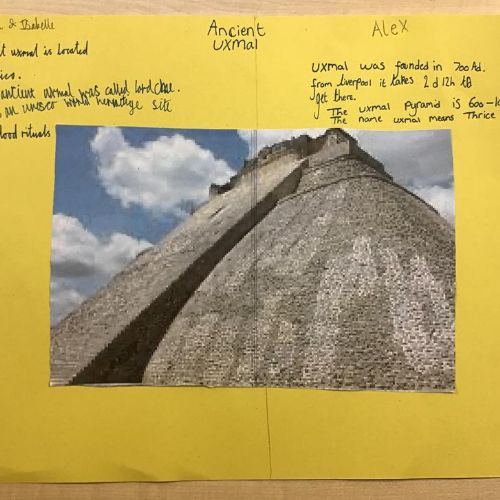 & Isabelle
Ancient
uxmal
Alex
uxmal is Located
ancient uxmal was called lord chac.
an unesco world heritage site
blood rituals
uxmal was founded in 700 Ad.
from Liverpool it takes 2 d 12h to
get there.
The uxmal pyramid is 600-
The name uxmal means Thrice